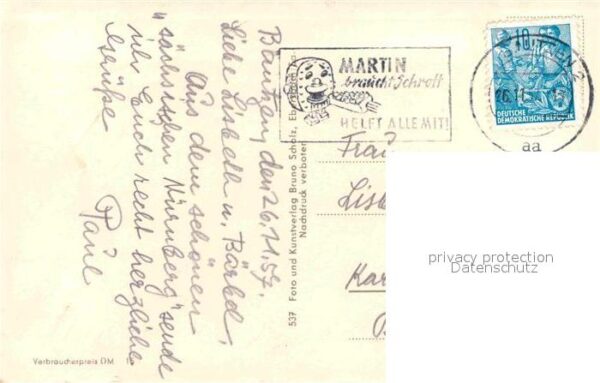 Bautzen, den 26.11.57.
Liebe Lisbeth u. Bärbel,
Aus dem schönen
"sächsischen Nürnberg" sende
ich Euch recht herzliche
Grüße
Paul
MARTIN
braucht Schrott
HELFT ALLE MIT!
10
DEUTSCHE
DEMOKRATISCHE REPUBLIK
aa
537 Foto und Kunstverlag Bruno Scholz,
Nachdruck verboten
Frau
Lisb
Kar
privacy protection
Datenschutz
Verbraucherpreis DM